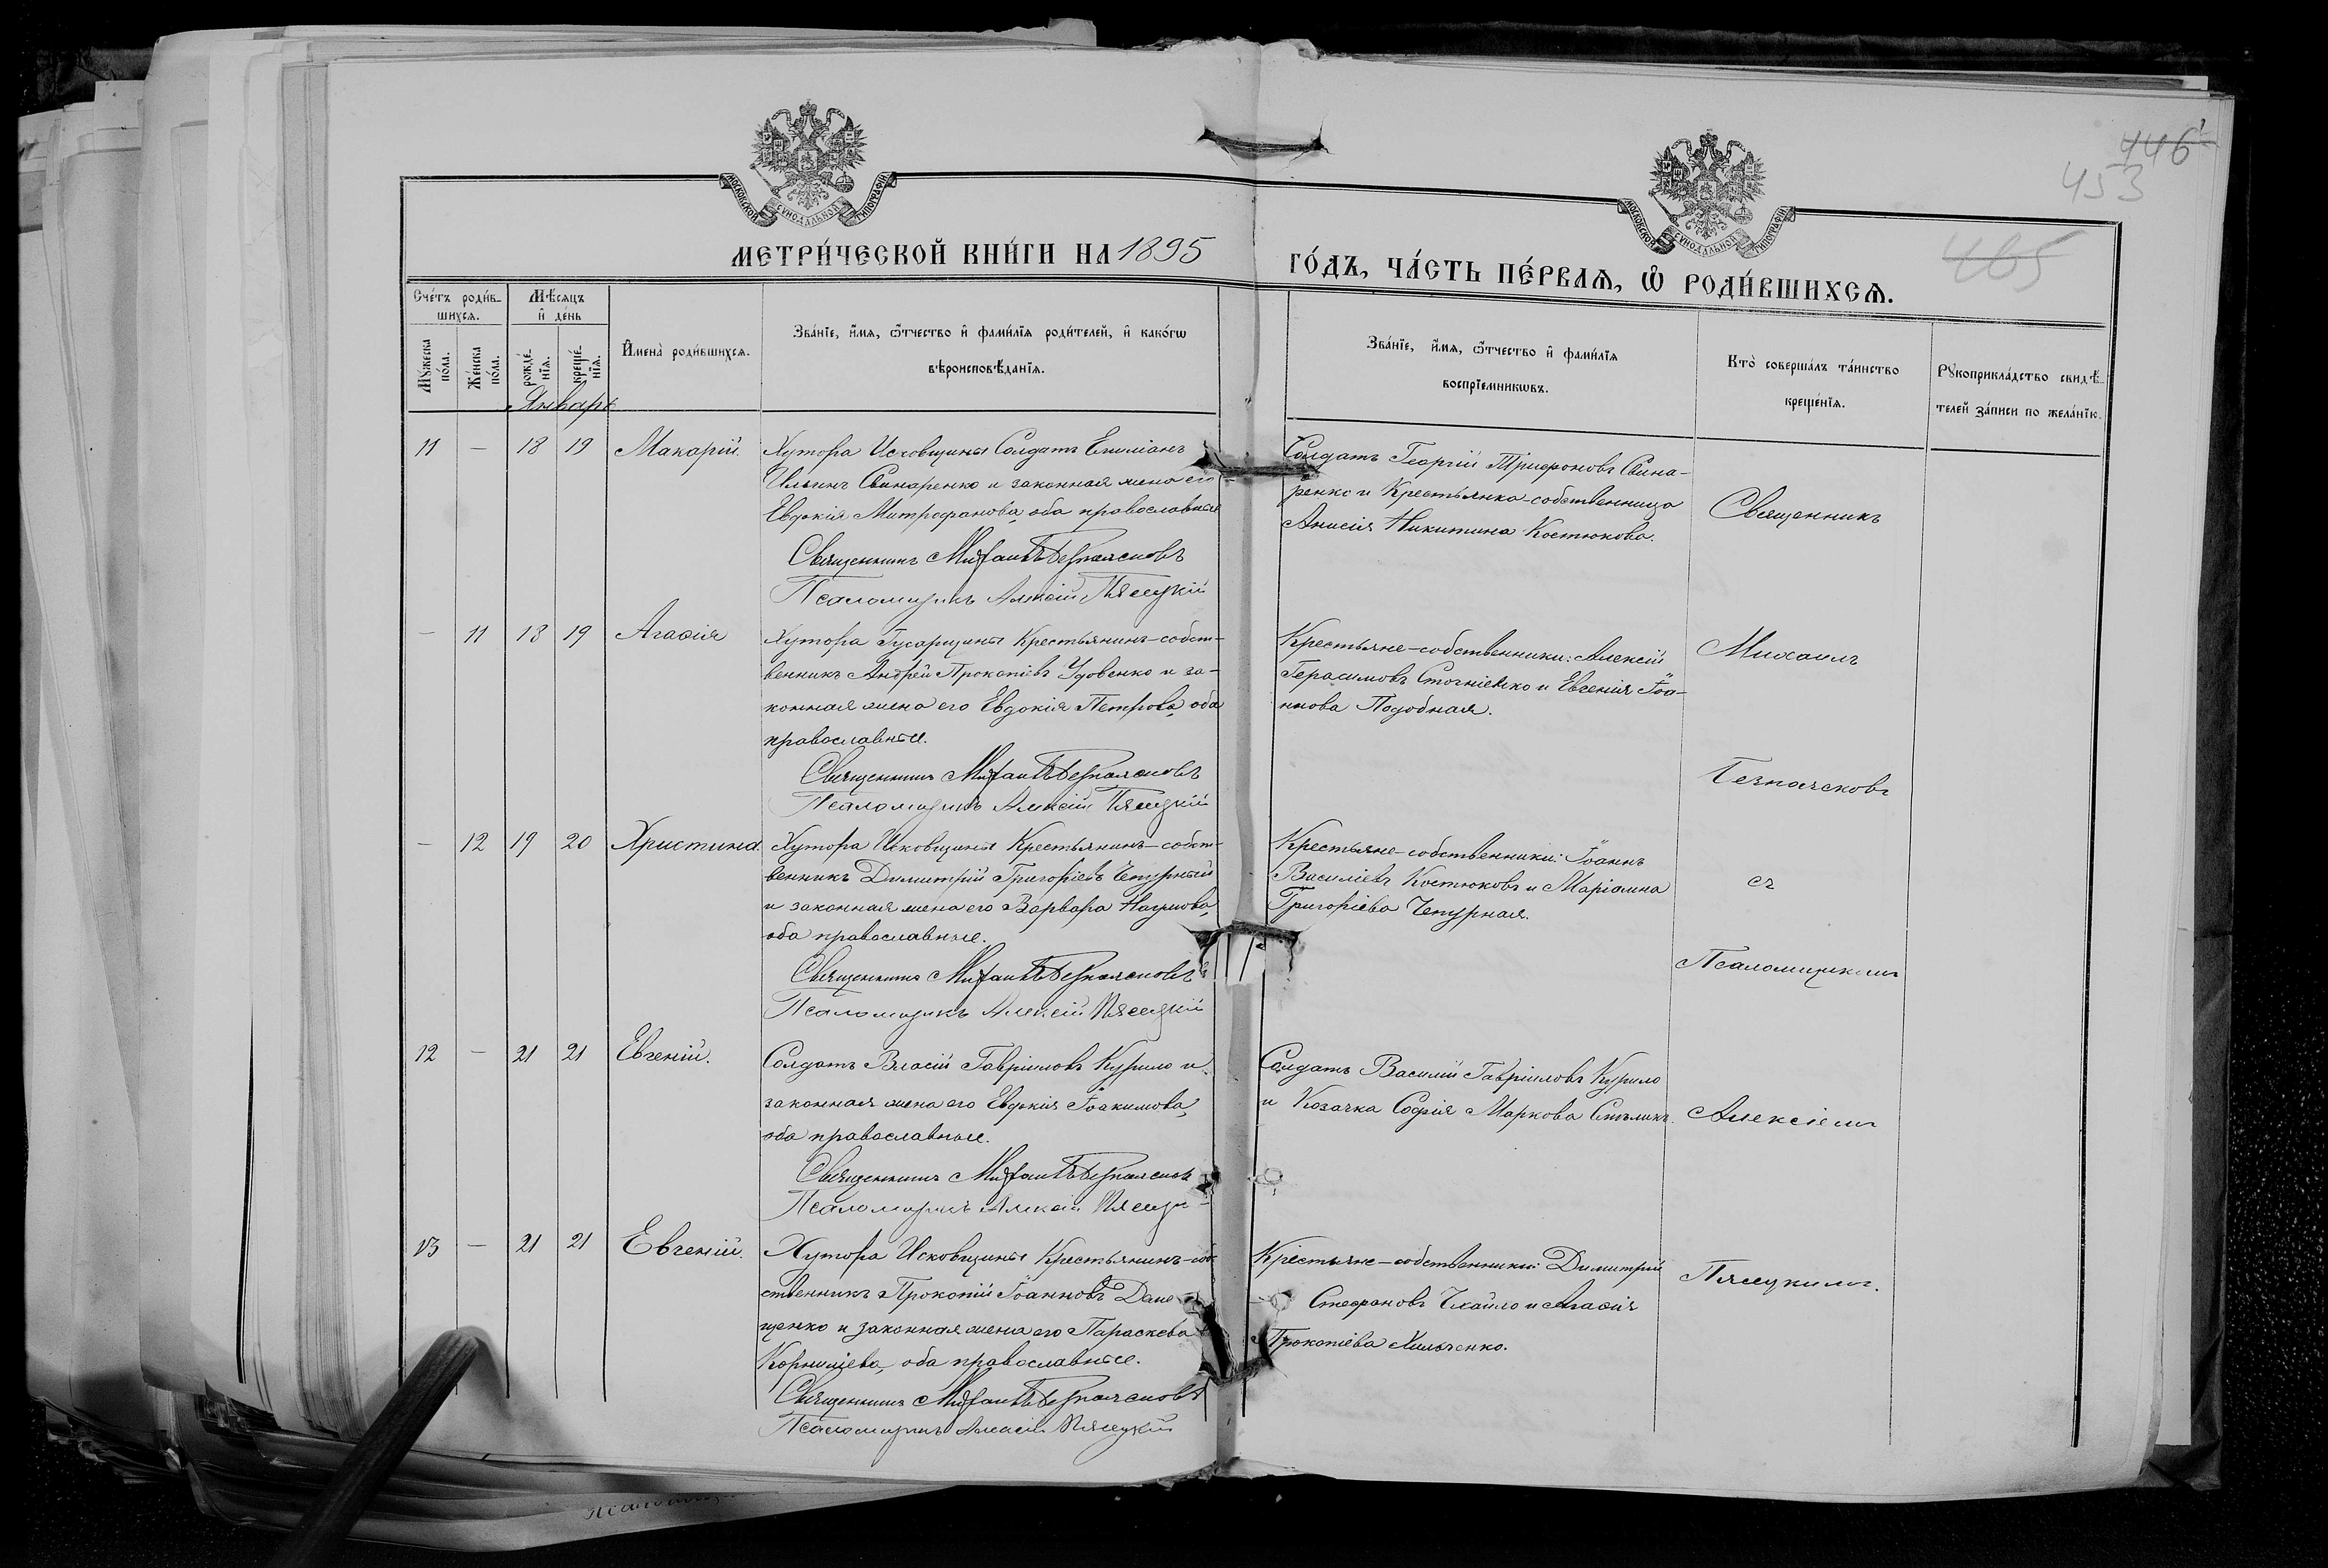 446
453
465
МОСКОВСКОЙ СѴНОДАЛЬНОЙ ТИПОГРАФІИ
МОСКОВСКОЙ СѴНОДАЛЬНОЙ ТИПОГРАФІИ
МЕТРИ́ЧЕСКОЙ КНИ́ГИ НА 1895
ГО́ДЪ, ЧА́СТЬ ПЕ́РВАѦ, Ѡ҆ РОДИ́ВШИХСѦ.
Сче́тъ роди́в-
шихсѧ.
Мꙋ́жеска по́ла.
Же́нска по́ла.
Мѣ́сѧцъ
и҆ де́нь
рожде́-
нїѧ.
креще́-
нїѧ.
Январь
И҆мена̀ роди́вшихсѧ.
Зва́нїе, и҆́мѧ, ѻ҆́тчество и҆ фами́лїѧ роди́телей, и҆ како́гѡ
вѣроисповѣ́данїѧ.
Зва́нїе, и҆́мѧ, ѻ҆́тчество и҆ фами́лїѧ
воспрїе́мникѡвъ.
Кто̀ соверша́лъ та́инство
креще́нїѧ.
Рꙋкоприкла́дство свидѣ́-
телей за́писи по жела́нїю.
11 — 18 19 Макарій.
Хутора Исковщины Солдатъ Емиліанъ
Ильинъ Свинаренко и законная жена его
Евдокія Митрофанова, оба православные
Священникъ Михаилъ Безпаясковъ
Псаломщикъ Алексій Пясецкій
Солдатъ Георгій Трифоновъ Свина-
ренко и Крестьянка-собственница
Анисія Никитина Костюкова.
Священникъ
— 11 18 19 Агафія
Хутора Гусарщины Крестьянинъ-собст-
венникъ Андрей Прокопіевъ Удовенко и за-
конная жена его Евдокія Петрова, оба
православные.
Священникъ Михаилъ Безпаясковъ
Псаломщикъ Алексій Пясецкій
Крестьяне-собственники: Алексій
Герасимовъ Стогніенко и Евгенія Іоа-
ннова Подобная.
Михаилъ
Безпаясковъ
— 12 19 20 Христина.
Хутора Исковщины Крестьянинъ-собст-
венникъ Димитрій Григоріевъ Чепурный
и законная жена его Варвара Наумова,
оба православные.
Священникъ Михаилъ Безпаясковъ
Псаломщикъ Алексій Пясецкій
Крестьяне-собственники: Іоаннъ
Василіевъ Костюковъ и Маріамна
Григоріева Чепурная.
съ
Псаломщикомъ
12 — 21 21 Евгеній.
Солдатъ Власій Гавріиловъ Курило и
законная жена его Евдокія Іоакимова,
оба православные.
Священникъ Михаилъ Безпаясковъ
Псаломщикъ Алексій
Солдатъ Василій Гавріиловъ Курило
и Козачка Софія Маркова
Алексіемъ
13 — 21 21 Евгеній.
Хутора Исковщины Крестьянинъ-соб-
ственникъ Прокопій Іоанновъ
щенко и законная жена его Параскева
Корниліева, оба православные.
Священникъ Михаилъ Безпаясковъ
Псаломщикъ Алексій Пясецкій
Крістьяне-собственники: Димитрій
Стефановъ и Агафія
Прокопіева Хильченко.
Пясецкимъ.